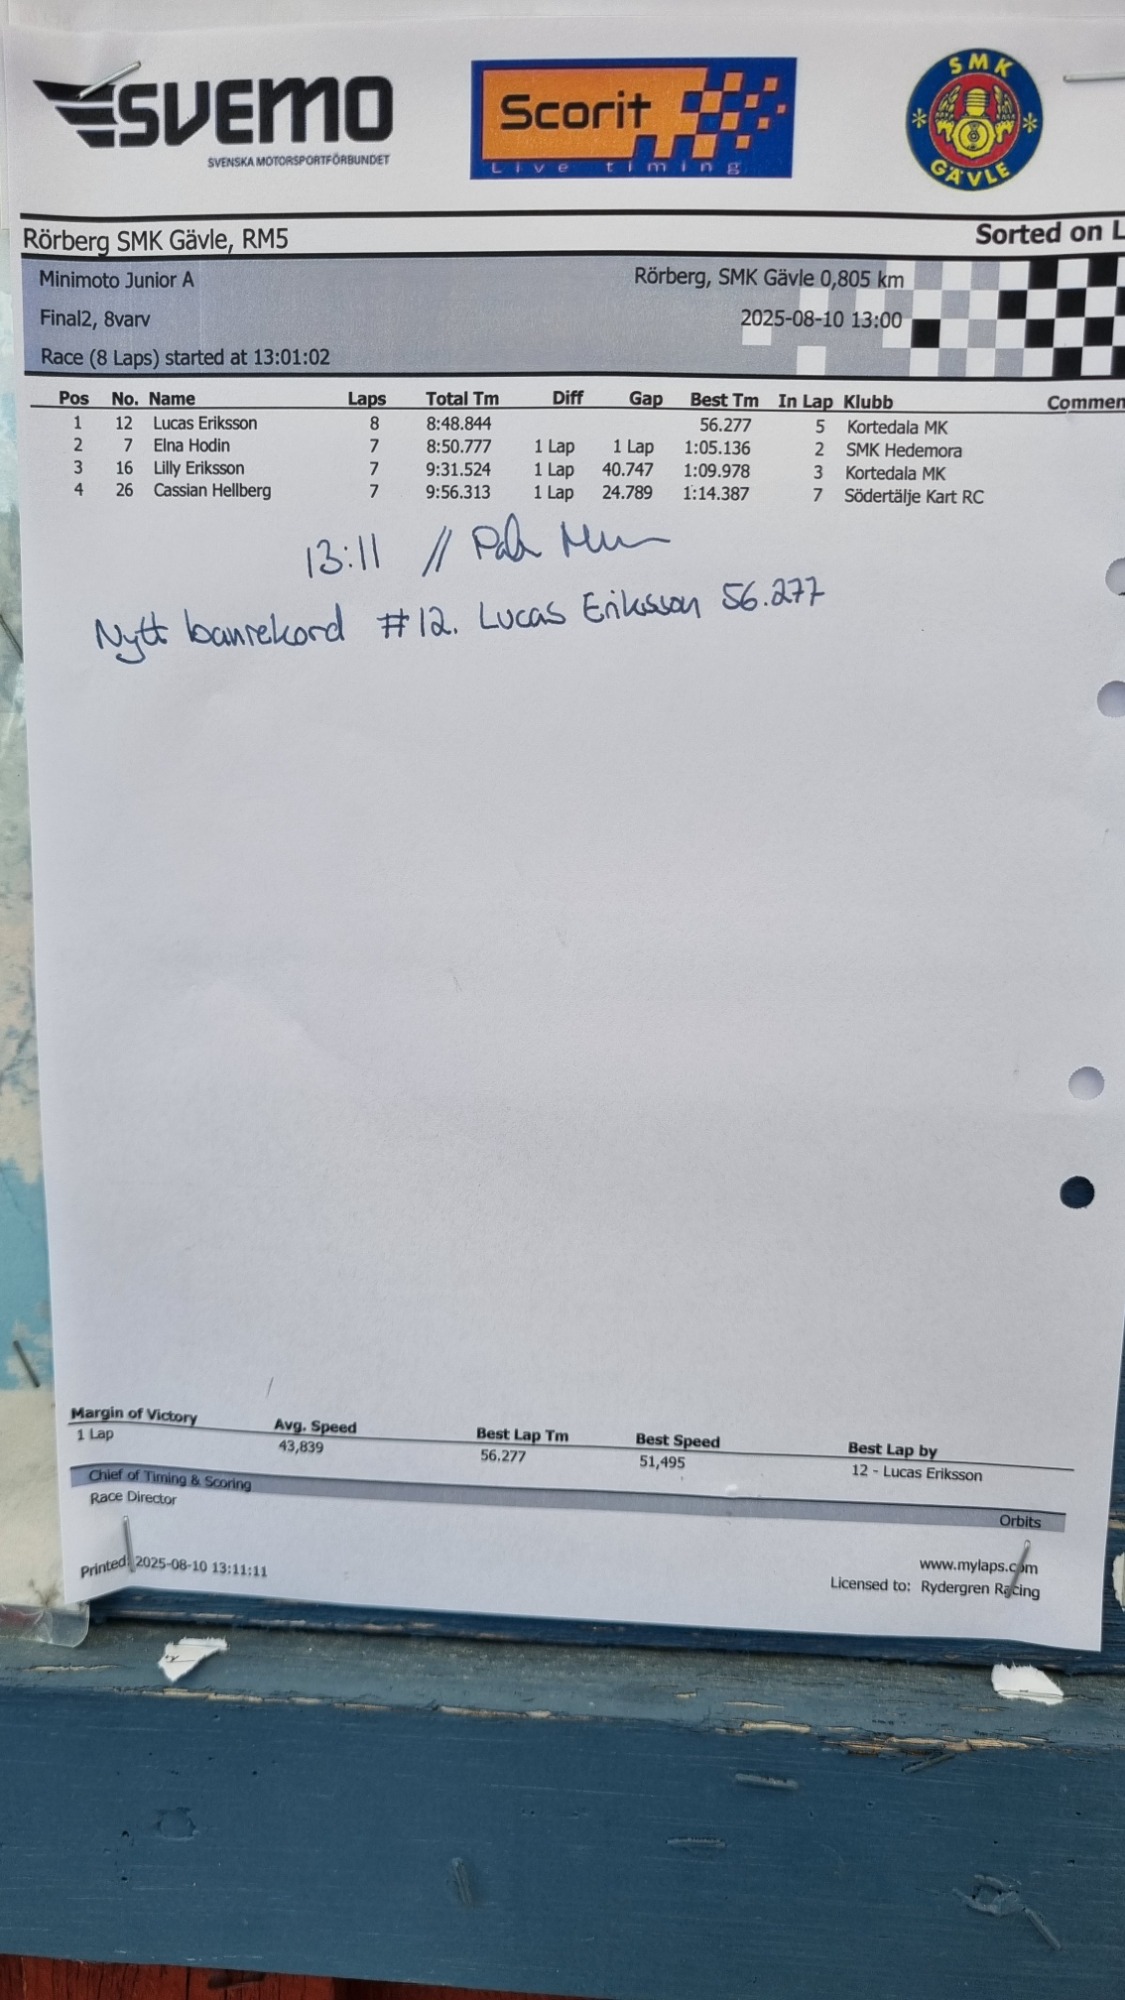 SVEMO
SVENSKA MOTORSPORTFÖRBUNDET
Scorit
Live timing
SMK
GÄVLE
Rörberg SMK Gävle, RM5 Sorted on L
Minimoto Junior A Rörberg, SMK Gävle 0,805 km
Final2, 8varv 2025-08-10 13:00
Race (8 Laps) started at 13:01:02
Pos No. Name Laps Total Tm Diff Gap Best Tm In Lap Klubb Commen
1 12 Lucas Eriksson 8 8:48.844 56.277 5 Kortedala MK
2 7 Elna Hodin 7 8:50.777 1 Lap 1 Lap 1:05.136 2 SMK Hedemora
3 16 Lilly Eriksson 7 9:31.524 1 Lap 40.747 1:09.978 3 Kortedala MK
4 26 Cassian Hellberg 7 9:56.313 1 Lap 24.789 1:14.387 7 Södertälje Kart RC
13:11 //
Nytt banrekord #12. Lucas Eriksson 56.277
Margin of Victory Avg. Speed Best Lap Tm Best Speed Best Lap by
1 Lap 43,839 56.277 51,495 12 - Lucas Eriksson
Chief of Timing & Scoring
Race Director
Orbits
Printed: 2025-08-10 13:11:11
www.mylaps.com
Licensed to: Rydergren Racing